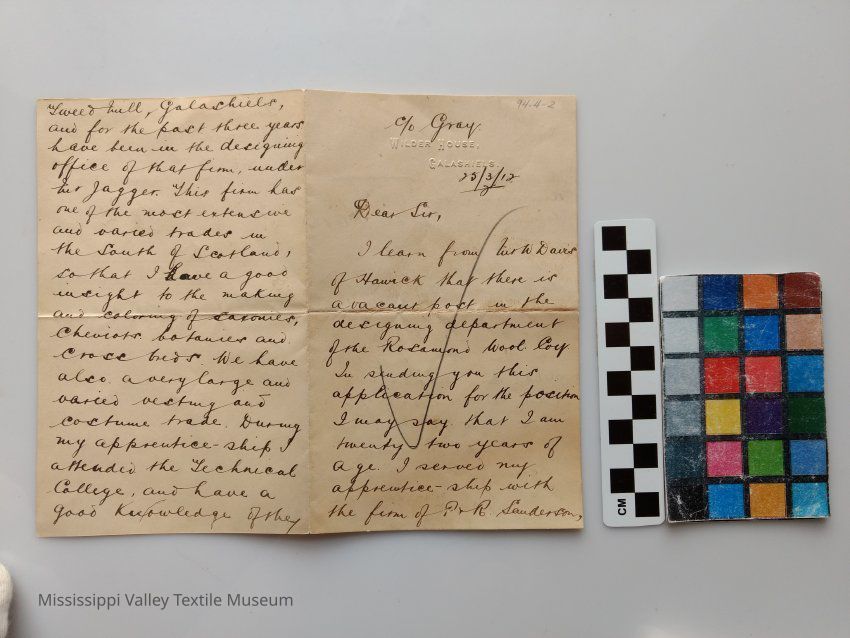 94-4-2
c/o Gray.
WILDER HOUSE,
GALASHIELS.
25/3/12
Dear Sir,
I learn from Mr W Davis
of Hawick that there is
a vacant post in the
designing department
of the Rosamond Wool. Coy.
In sending you this
application for the position
I may say that I am
twenty two years of
age. I served my
apprentice-ship with
the firm of P & R. Sanderson,
Tweed Mill, Galashiels,
and for the past three years
have been in the designing
office of that firm, under
Mr Jagger. This firm has
one of the most extensive
and varied trades in
the South of Scotland,
so that I have a good
insight to the making
and coloring of saxonies,
Cheviots, botanies and
Cross breds. We have
also a very large and
varied vesting and
costume trade. During
my apprentice-ship I
attended the Technical
College, and have a
good knowledge of the
CM
Mississippi Valley Textile Museum